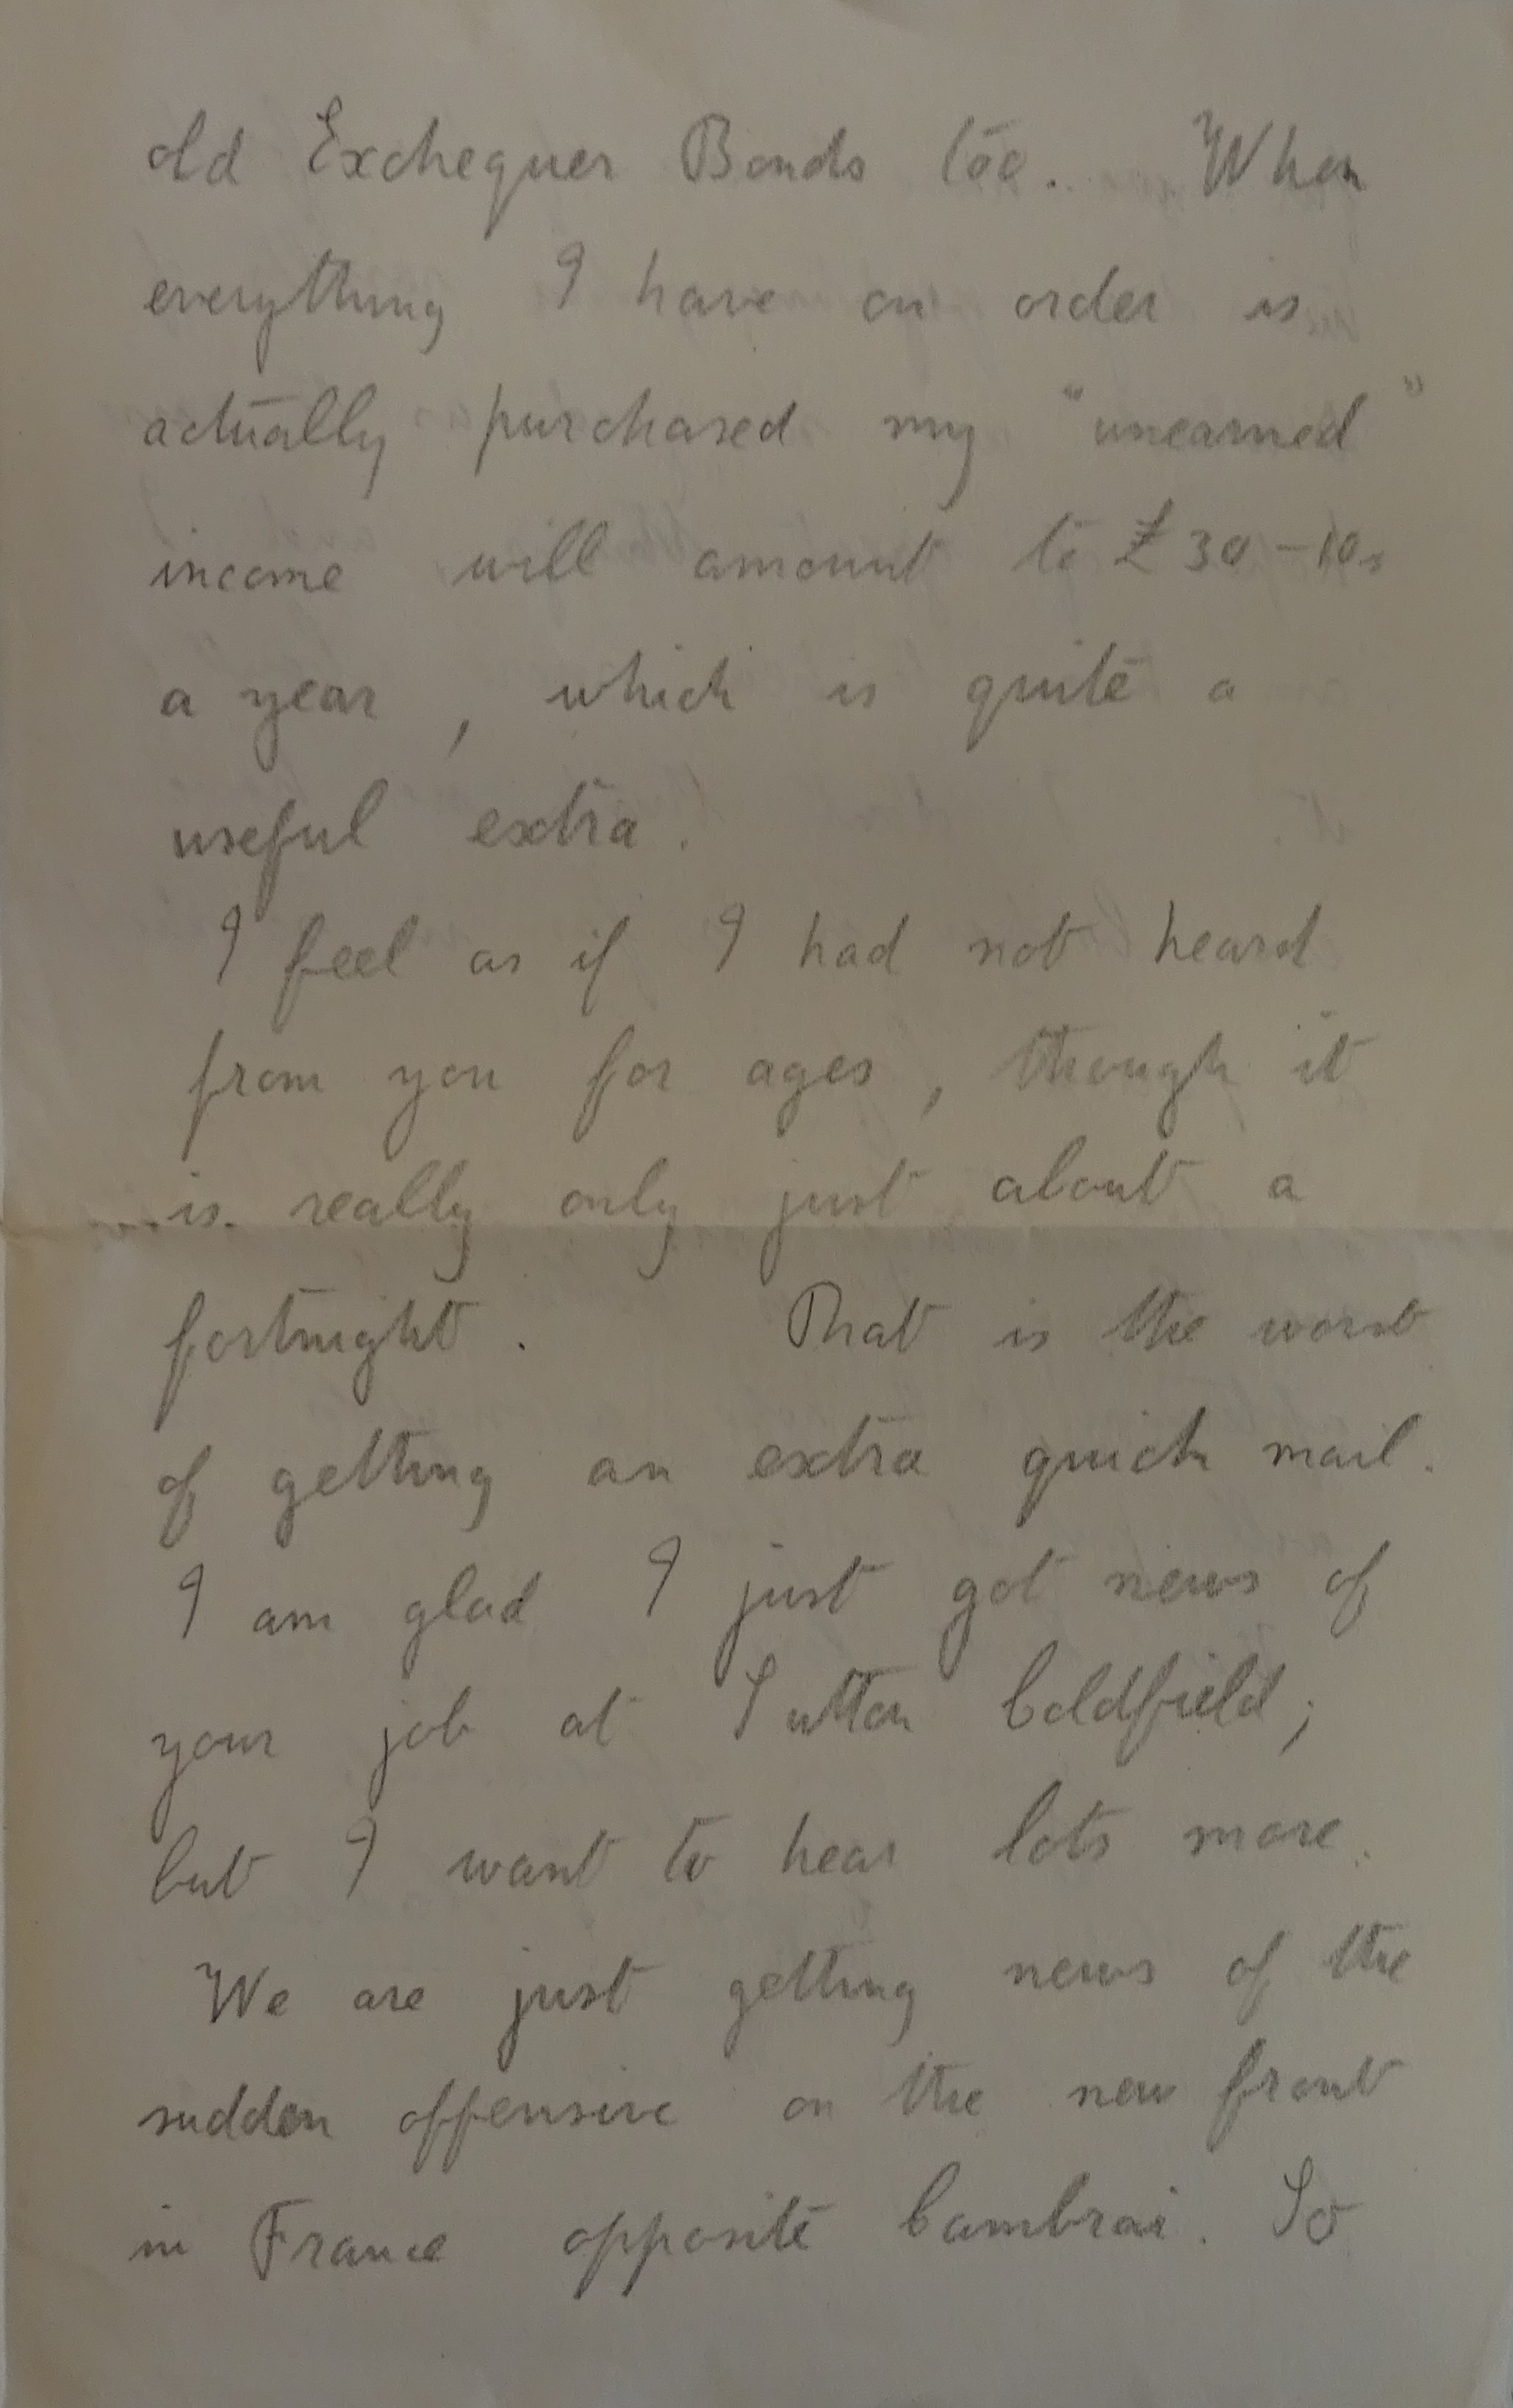 old Exchequer Bonds too. When
everything I have on order is
actually purchased my "unearned"
income will amount to £30-10s
a year, which is quite a
useful extra.
I feel as if I had not heard
from you for ages, though it
is really only just about a
fortnight. That is the worst
of getting an extra quick mail.
I am glad I just got news of
your job at Sutton Coldfield;
but I want to hear lots more.
We are just getting news of the
sudden offensive on the new front
in France opposite Cambrai. So